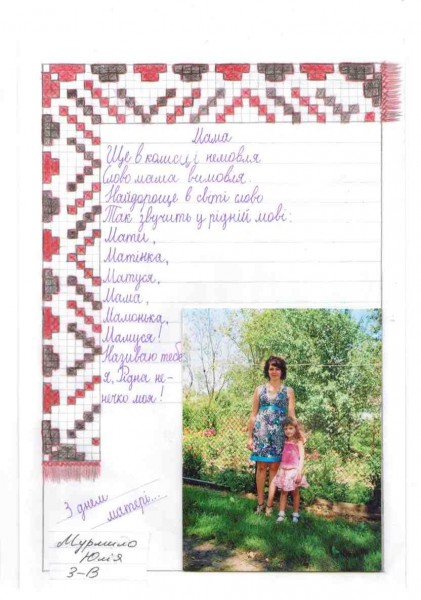 Мама
Ще в колисці немовля
Слово мама вимовля.
Найдорощe в світі слово
Так звучить у рідній мові:
Мати,
Матінка,
Матуся,
Мама,
Мамонька,
Мамуся!
Називаю тебе
я, Рідна не-
нечко моя!
З днем
матері...
Мурмило
Юлія
3-В